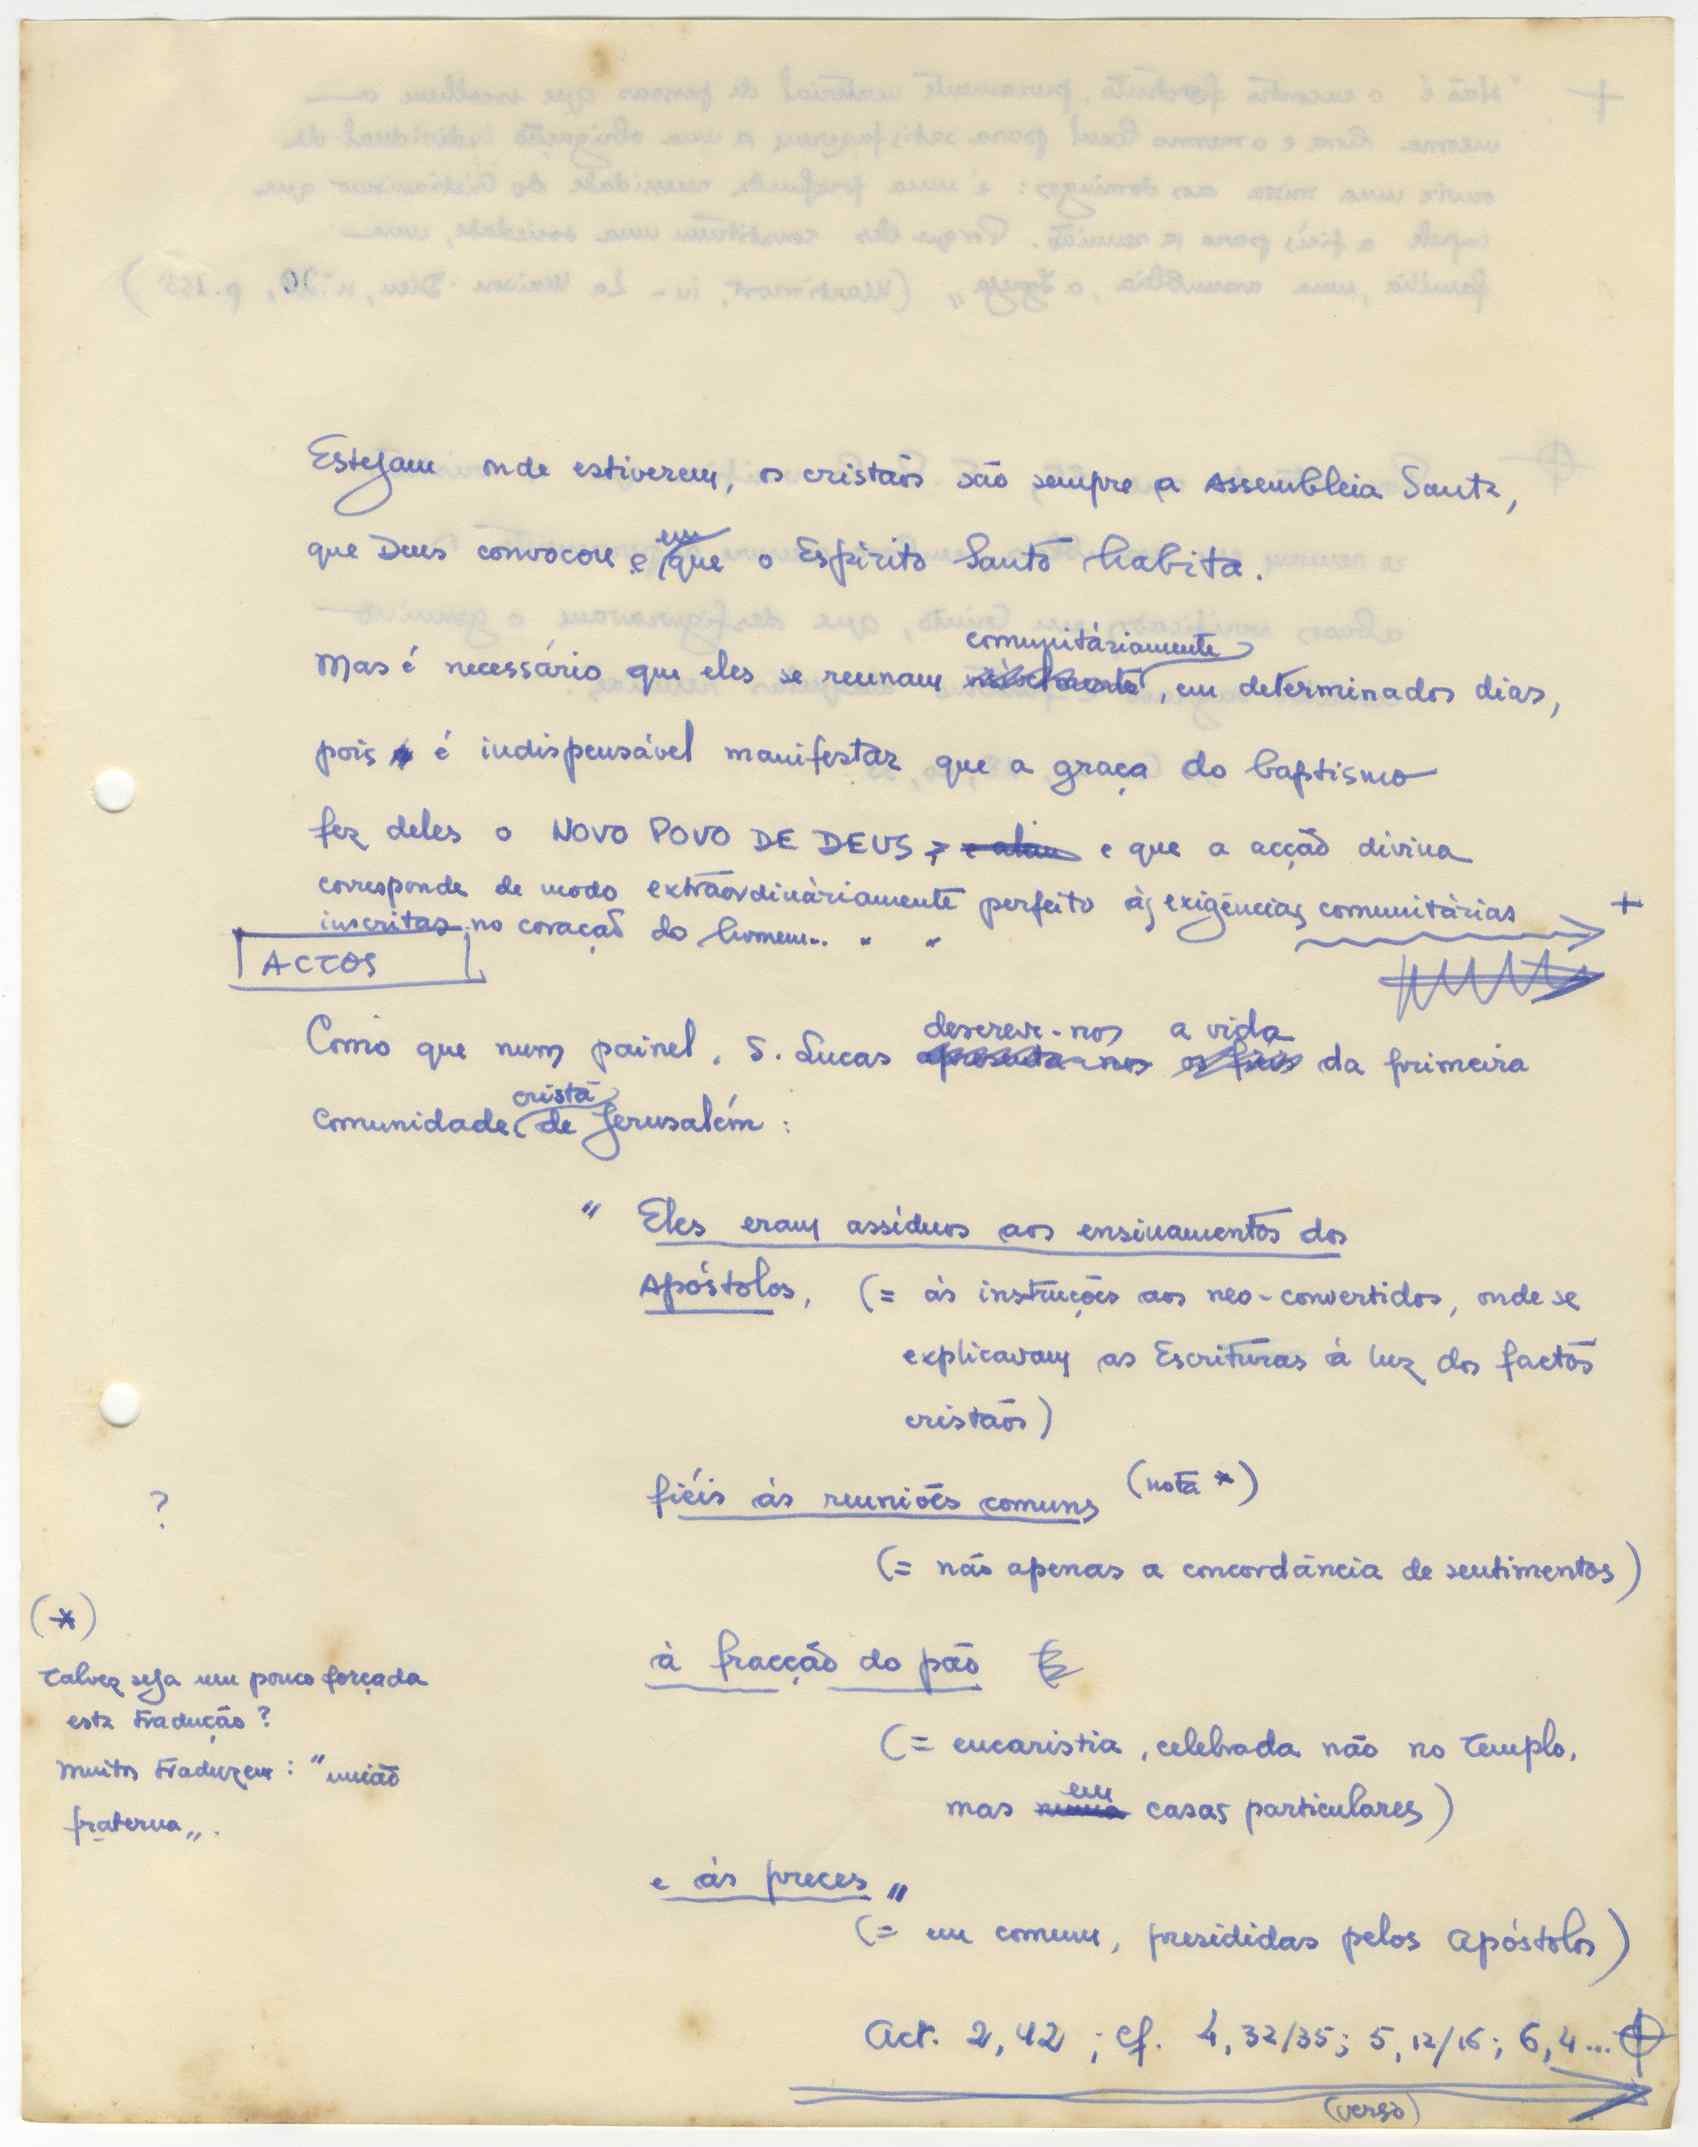 Estejam onde estiverem, os cristãos são sempre a Assembleia Santa,
que Deus convocou e em que o Espírito Santo habita.
Mas é necessário que eles se reunam comunitáriamente, em determinados dias,
pois é indispensável manifestar que a graça do baptismo
fez deles o NOVO POVO DE DEUS, e que a acção divina
corresponde de modo extraordinàriamente perfeito às exigências comunitárias +
inscritas no coração do homem..
ACTOS
Como que num painel, S. Lucas descreve-nos a vida da primeira
comunidade cristã de Jerusalém :
" Eles eram assíduos aos ensinamentos dos
Apóstolos, (= às instruções aos neo-convertidos, onde se
explicavam as Escrituras à luz dos factos
cristãos)
fiéis às reuniões comuns (nota *)
?
(= não apenas a concordância de sentimentos)
(*)
Talvez seja um pouco forçada
esta tradução ?
Muitos traduzem : "união
fraterna".
à fracção do pão
(= eucaristia, celebrada não no Templo,
mas em casas particulares)
e às preces "
(= em comum, presididas pelos Apóstolos)
Act. 2, 42 ; cf. 4, 32/35; 5, 12/16; 6, 4...
(verso)